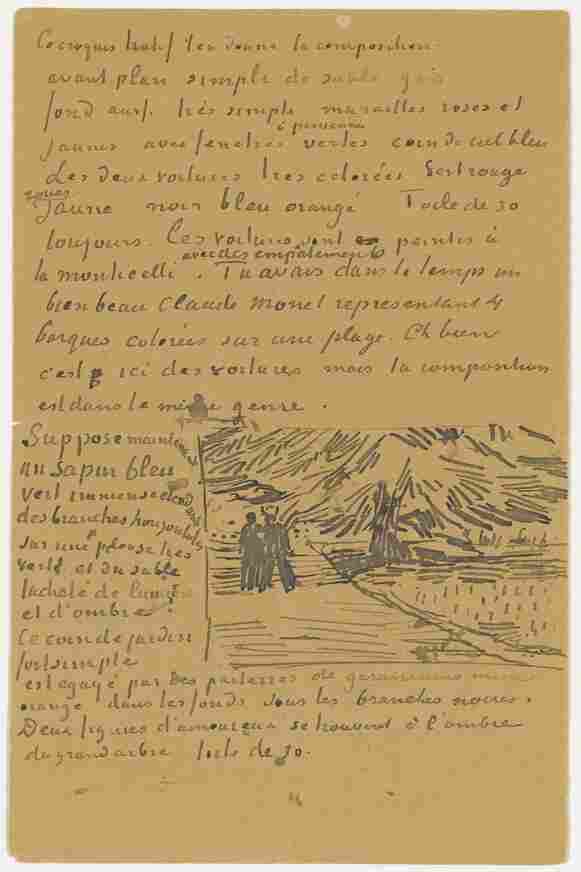 Ce croquis hatif t'en donne la composition.
avant plan simple de sable gris
fond aussi très simple murailles roses et
à persiennes
jaunes avec fenetres vertes coin de ciel bleu
Les deux voitures tres colorées vert rouge
roues
jaune noir bleu orangé Toile de 30
toujours. Les voitures sont peintes à
avec des empatements
la monticelli. Tu avais dans le temps un
bien beau Claude Monet representant 4
barques colorées sur une plage. Eh bien
c'est ici des voitures mais la composition
est dans le même genre.
Suppose maintenant
un sapin bleu
vert immense etendant
des branches horizontales
sur une pelouse très
verte et du sable
tacheté de lumière
et d'ombre.
Ce coin de jardin
fort simple
est egayé par des parterres de geraniums mine
orange dans les fonds sous les branches noires.
Deux figures d'amoureux se trouvent à l'ombre
du grand arbre toile de 30.